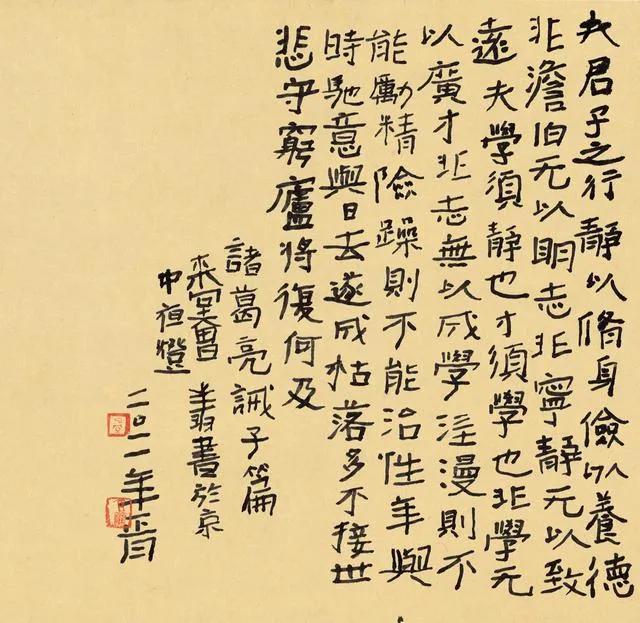 夫君子之行靜以脩身儉以養德
非澹泊无以明志非寧靜无以致
遠夫學須靜也才須學也非學无
以廣才非志無以成學淫漫則不
能勵精險躁則不能治性年與
時馳意與日去遂成枯落多不接世
悲守窮廬將復何及
諸葛亮誡子篇
堂曾翔書於京
燈
二〇一一年正月